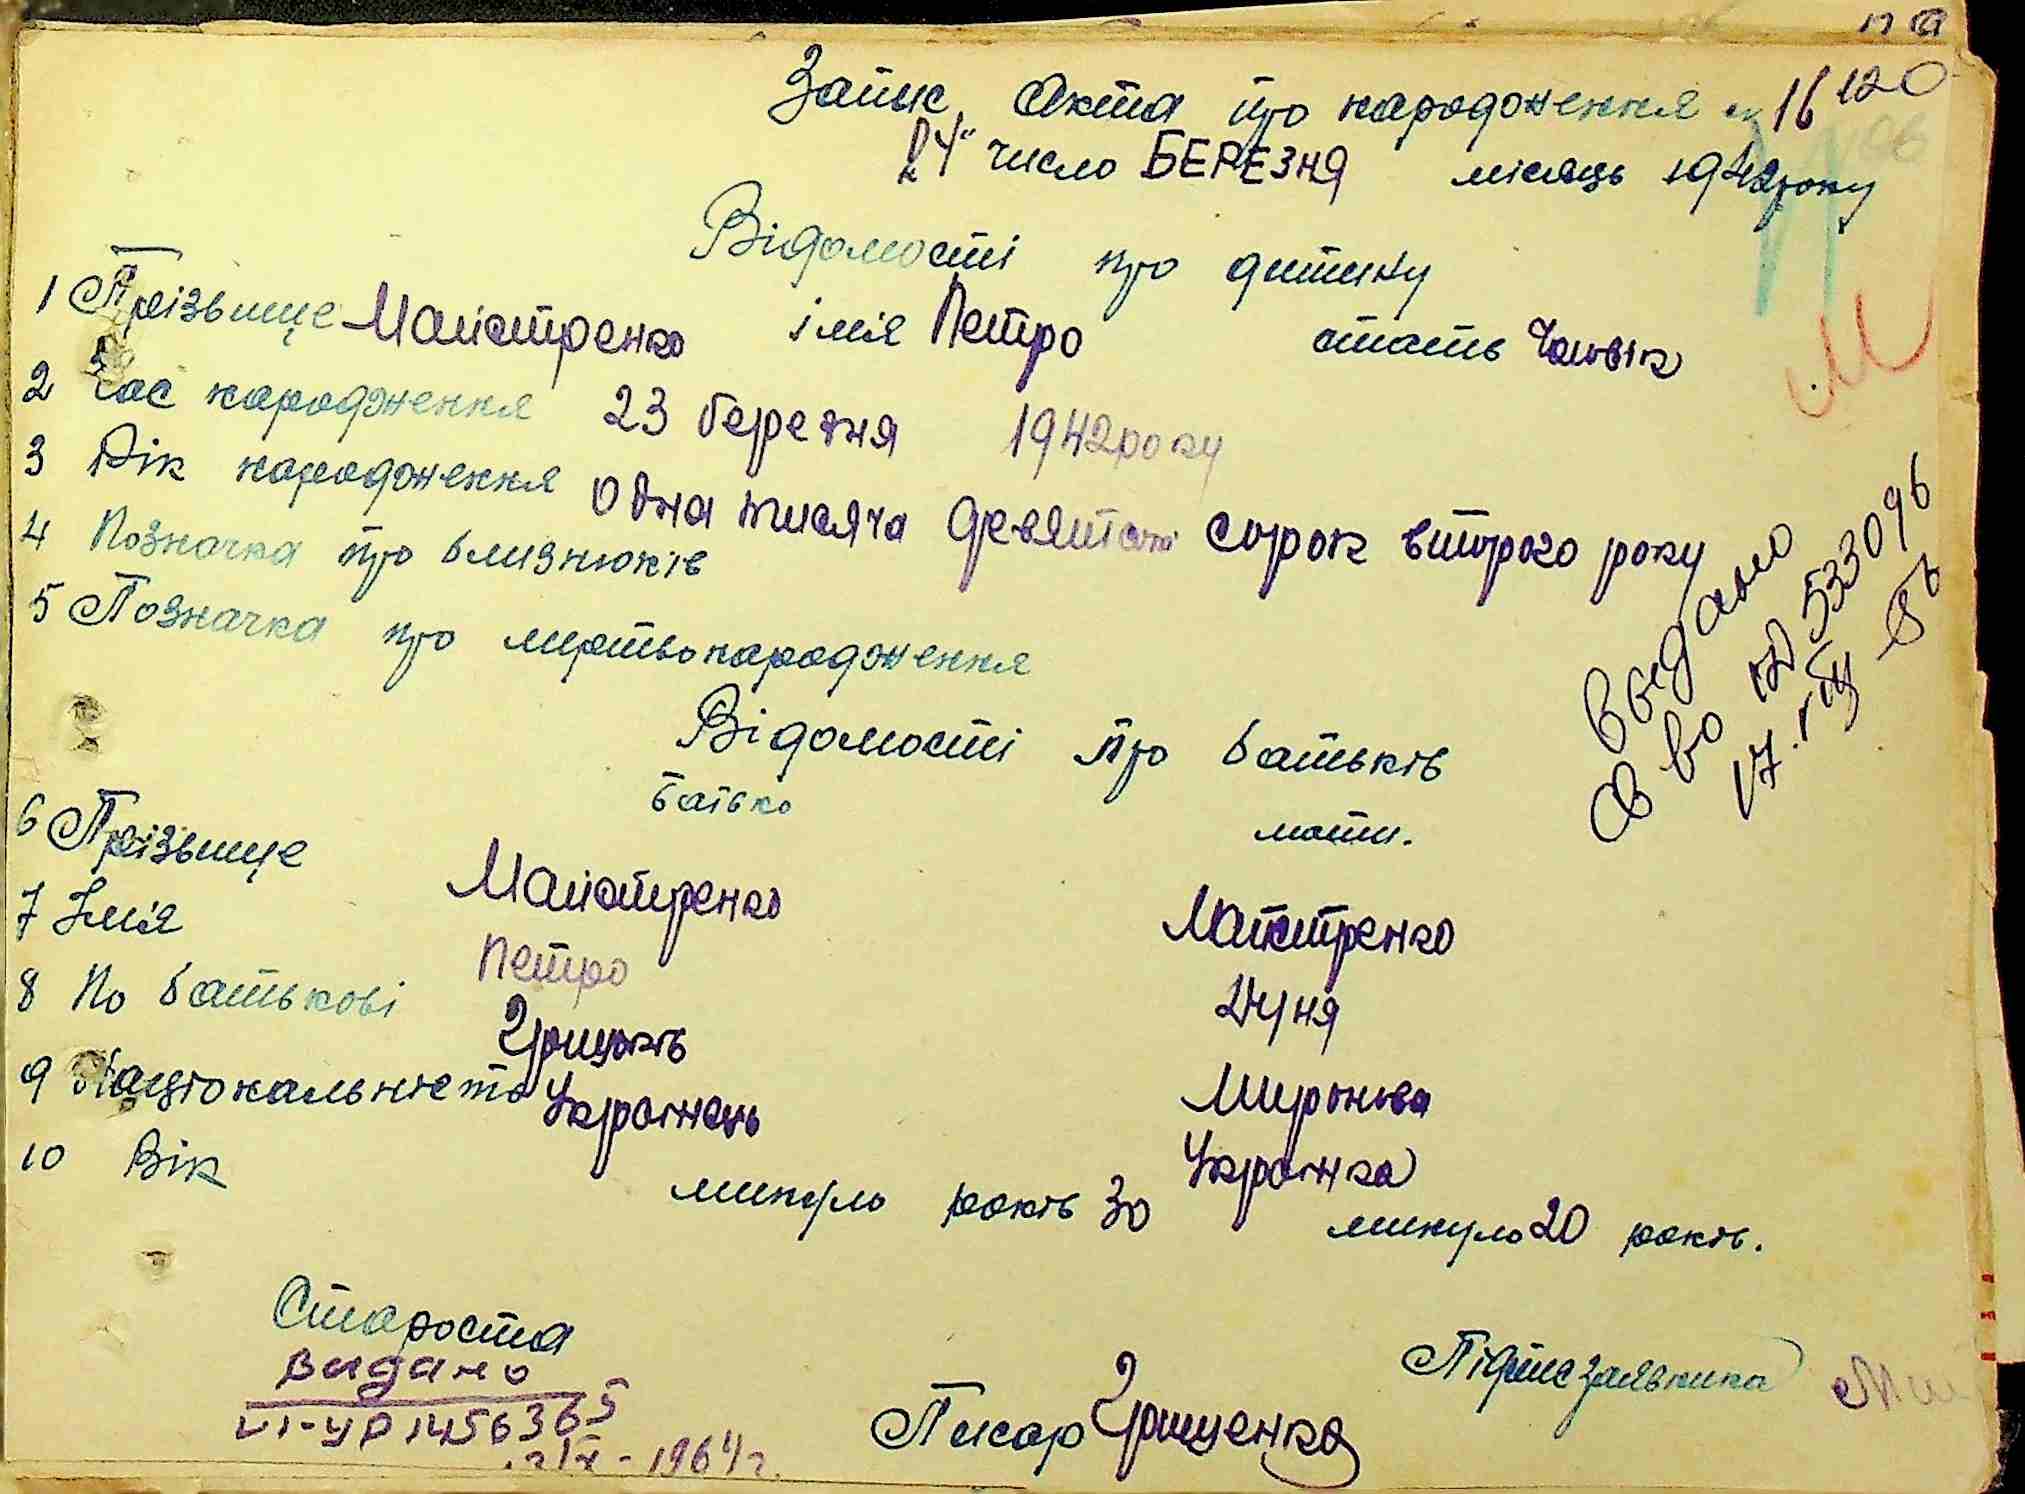 120
Запис Акта про народження № 16
"24" число БЕРЕЗНЯ місяць 1942 року
Відомості про дитину
1 Прізвище Маистренко імія Петро стать Чоловік
2 Час народження 23 березня 1942 року
3 Рік народження одна тисяча девятсот сорок второго року
4 Позначка про близнюків
5 Позначка про мертвонародження
Відомості про батьків
батько мати.
6 Прізвище Маистренко Маистренко
7 Імія Петро Дуня
8 По батькові Грицьків Миронова
9 Національність Українець Українка
10 Вік минуло років 30 минуло 20 років.
Староста
Видано
VI-УР 1456365
IX - 1964 г.
Писар Грищенко
Підпис заявника
Выдано
св во № 533096
17.